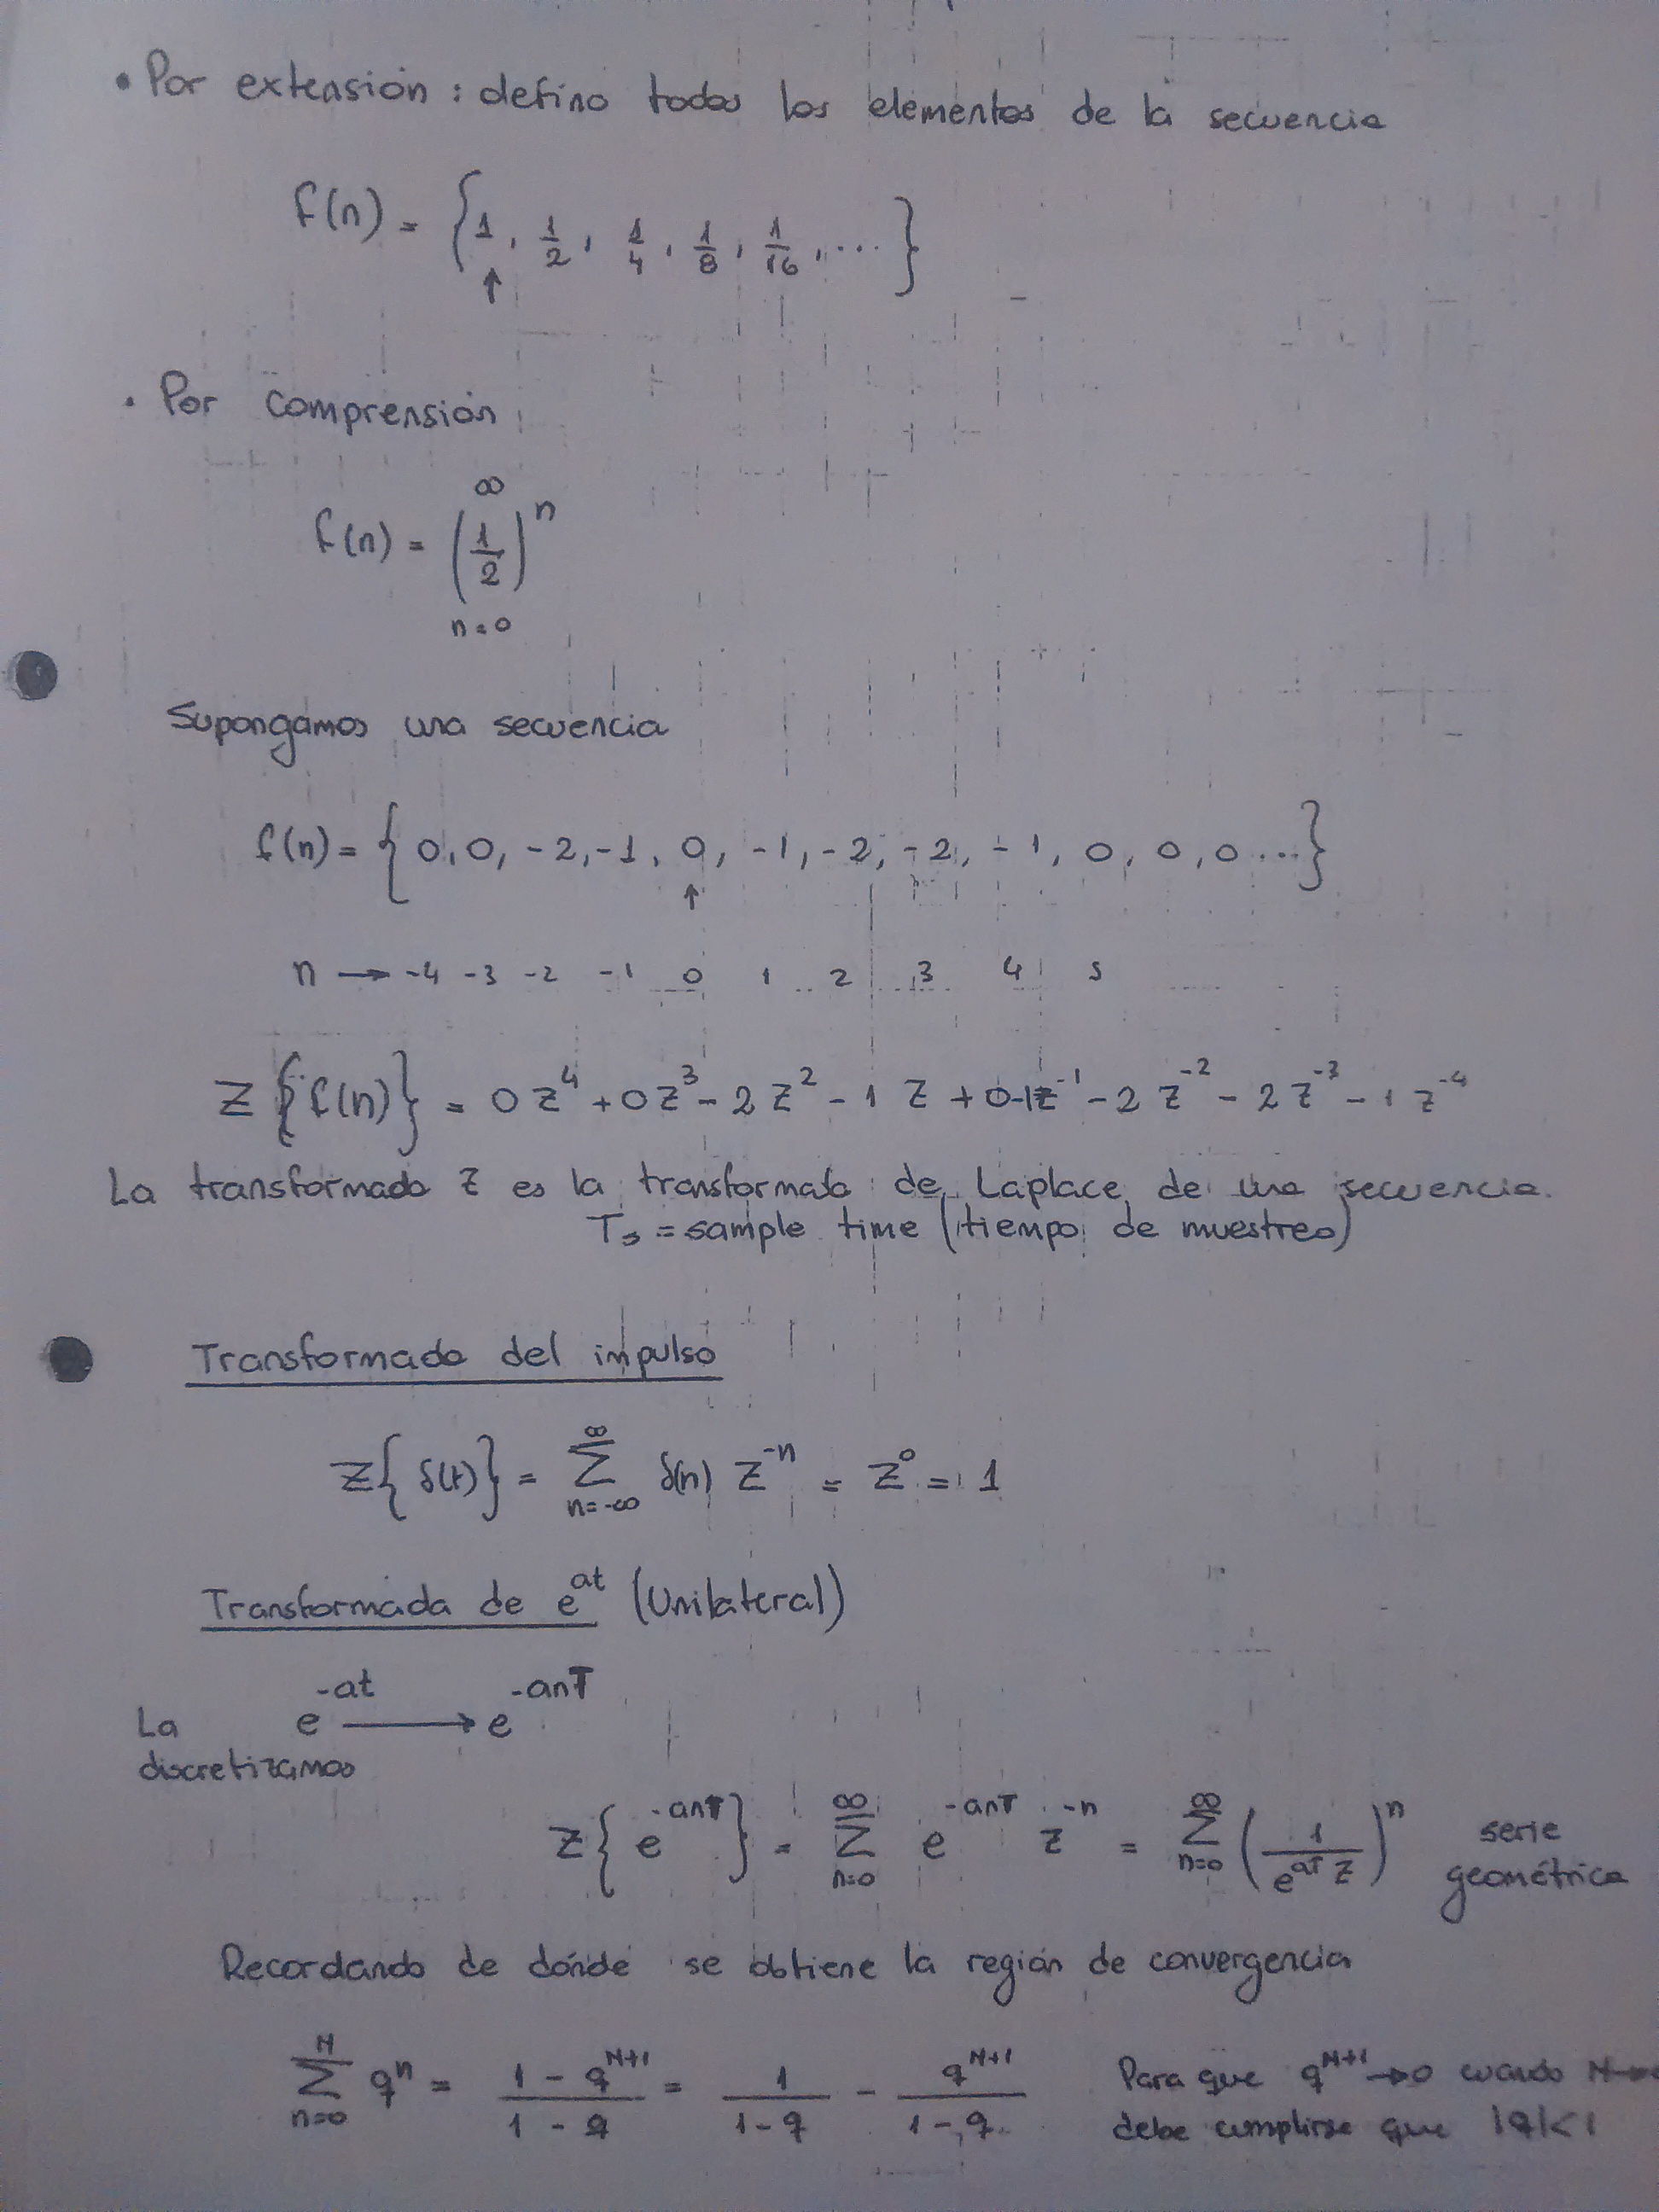 • Por extensión : defino todos los elementos de la secuencia
f(n) = { 1, 1/2, 1/4, 1/8, 1/16, ... }
↑
• Por comprensión
∞
f(n) = (1/2)^n
n=0
Supongamos una secuencia
f(n) = { 0, 0, -2, -1, 0, -1, -2, -2, -1, 0, 0, 0 ... }
↑
n → -4 -3 -2 -1 0 1 2 3 4 5
Z {f(n)} = 0 z^4 + 0 z^3 - 2 z^2 - 1 z + 0 - 1z^-1 - 2 z^-2 - 2 z^-3 - 1 z^-4
La transformada Z es la transformada de Laplace de una secuencia.
Ts = sample time (tiempo de muestreo)
Transformada del impulso
Z{ δ(t) } = ∑_{n=-∞}^{∞} δ(n) z^-n = z^0 = 1
Transformada de e^at (Unilateral)
La e^-at → e^-anT
discretizamos
Z{ e^-anT } = ∑_{n=0}^{∞} e^-anT z^-n = ∑_{n=0}^{∞} ( 1 / (e^aT z) )^n serie
geométrica
Recordando de dónde se obtiene la región de convergencia
∑_{n=0}^{N} q^n = (1 - q^{N+1}) / (1 - q) = 1 / (1 - q) - q^{N+1} / (1 - q) Para que q^{N+1} → 0 cuando N→∞
debe cumplirse que |q|<1